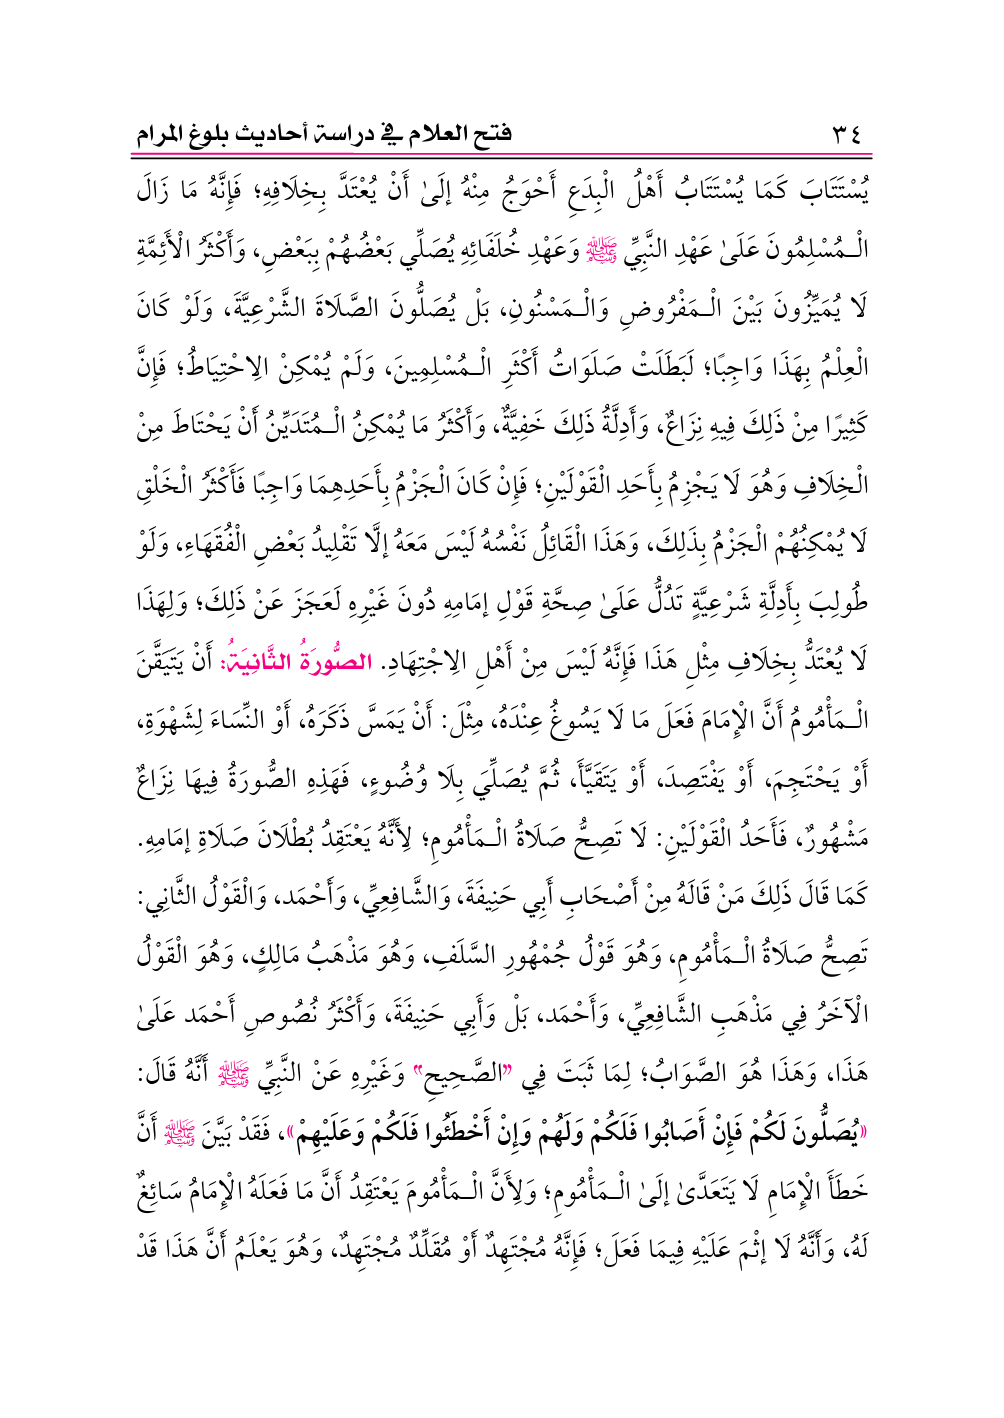 ٣٤ فتح العلام في دراسة أحاديث بلوغ المرام
يُسْتَتَابَ كَمَا يُسْتَتَابُ أَهْلُ الْبِدَعِ أَحْوَجُ مِنْهُ إلَىٰ أَنْ يُعْتَدَّ بِخِلَافِهِ؛ فَإِنَّهُ مَا زَالَ
الْـمُسْلِمُونَ عَلَىٰ عَهْدِ النَّبِيِّ ﷺ وَعَهْدِ خُلَفَائِهِ يُصَلِّي بَعْضُهُمْ بِبَعْضٍ، وَأَكْثَرُ الْأَئِمَّةِ
لَا يُمَيِّزُونَ بَيْنَ الْـمَفْرُوضِ وَالْـمَسْنُونِ، بَلْ يُصَلُّونَ الصَّلَاةَ الشَّرْعِيَّةَ، وَلَوْ كَانَ
الْعِلْمُ بِهَذَا وَاجِبًا؛ لَبَطَلَتْ صَلَوَاتُ أَكْثَرِ الْـمُسْلِمِينَ، وَلَمْ يُمْكِنْ الِاحْتِيَاطُ؛ فَإِنَّ
كَثِيرًا مِنْ ذَلِكَ فِيهِ نِزَاعٌ، وَأَدِلَّةُ ذَلِكَ خَفِيَّةٌ، وَأَكْثَرُ مَا يُمْكِنُ الْـمُتَدَيِّنُ أَنْ يَحْتَاطَ مِنْ
الْخِلَافِ وَهُوَ لَا يَجْزِمُ بِأَحَدِ الْقَوْلَيْنِ؛ فَإِنْ كَانَ الْجَزْمُ بِأَحَدِهِمَا وَاجِبًا فَأَكْثَرُ الْخَلْقِ
لَا يُمْكِنُهُمْ الْجَزْمُ بِذَلِكَ، وَهَذَا الْقَائِلُ نَفْسُهُ لَيْسَ مَعَهُ إلَّا تَقْلِيدُ بَعْضِ الْفُقَهَاءِ، وَلَوْ
طُولِبَ بِأَدِلَّةٍ شَرْعِيَّةٍ تَدُلُّ عَلَىٰ صِحَّةِ قَوْلِ إمَامِهِ دُونَ غَيْرِهِ لَعَجَزَ عَنْ ذَلِكَ؛ وَلِهَذَا
لَا يُعْتَدُّ بِخِلَافِ مِثْلِ هَذَا فَإِنَّهُ لَيْسَ مِنْ أَهْلِ الِاجْتِهَادِ. الصُّورَةُ الثَّانِيَةُ: أَنْ يَتَيَقَّنَ
الْـمَأْمُومُ أَنَّ الْإِمَامَ فَعَلَ مَا لَا يَسُوغُ عِنْدَهُ، مِثْلَ: أَنْ يَمَسَّ ذَكَرَهُ، أَوْ النِّسَاءَ لِشَهْوَةٍ،
أَوْ يَحْتَجِمَ، أَوْ يَفْتَصِدَ، أَوْ يَتَقَيَّأَ، ثُمَّ يُصَلِّيَ بِلَا وُضُوءٍ، فَهَذِهِ الصُّورَةُ فِيهَا نِزَاعٌ
مَشْهُورٌ، فَأَحَدُ الْقَوْلَيْنِ: لَا تَصِحُّ صَلَاةُ الْـمَأْمُومِ؛ لِأَنَّهُ يَعْتَقِدُ بُطْلَانَ صَلَاةِ إمَامِهِ.
كَمَا قَالَ ذَلِكَ مَنْ قَالَهُ مِنْ أَصْحَابِ أَبِي حَنِيفَةَ، وَالشَّافِعِيِّ، وَأَحْمَد، وَالْقَوْلُ الثَّانِي:
تَصِحُّ صَلَاةُ الْـمَأْمُومِ، وَهُوَ قَوْلُ جُمْهُورِ السَّلَفِ، وَهُوَ مَذْهَبُ مَالِكٍ، وَهُوَ الْقَوْلُ
الْآخَرُ فِي مَذْهَبِ الشَّافِعِيِّ، وَأَحْمَد، بَلْ وَأَبِي حَنِيفَةَ، وَأَكْثَرُ نُصُوصِ أَحْمَد عَلَىٰ
هَذَا، وَهَذَا هُوَ الصَّوَابُ؛ لِمَا ثَبَتَ فِي "الصَّحِيحِ" وَغَيْرِهِ عَنْ النَّبِيِّ ﷺ أَنَّهُ قَالَ:
«يُصَلُّونَ لَكُمْ فَإِنْ أَصَابُوا فَلَكُمْ وَلَهُمْ وَإِنْ أَخْطَئُوا فَلَكُمْ وَعَلَيْهِمْ»، فَقَدْ بَيَّنَ ﷺ أَنَّ
خَطَأَ الْإِمَامِ لَا يَتَعَدَّىٰ إلَىٰ الْـمَأْمُومِ؛ وَلِأَنَّ الْـمَأْمُومَ يَعْتَقِدُ أَنَّ مَا فَعَلَهُ الْإِمَامُ سَائِغٌ
لَهُ، وَأَنَّهُ لَا إثْمَ عَلَيْهِ فِيمَا فَعَلَ؛ فَإِنَّهُ مُجْتَهِدٌ أَوْ مُقَلِّدٌ مُجْتَهِدٌ، وَهُوَ يَعْلَمُ أَنَّ هَذَا قَدْ